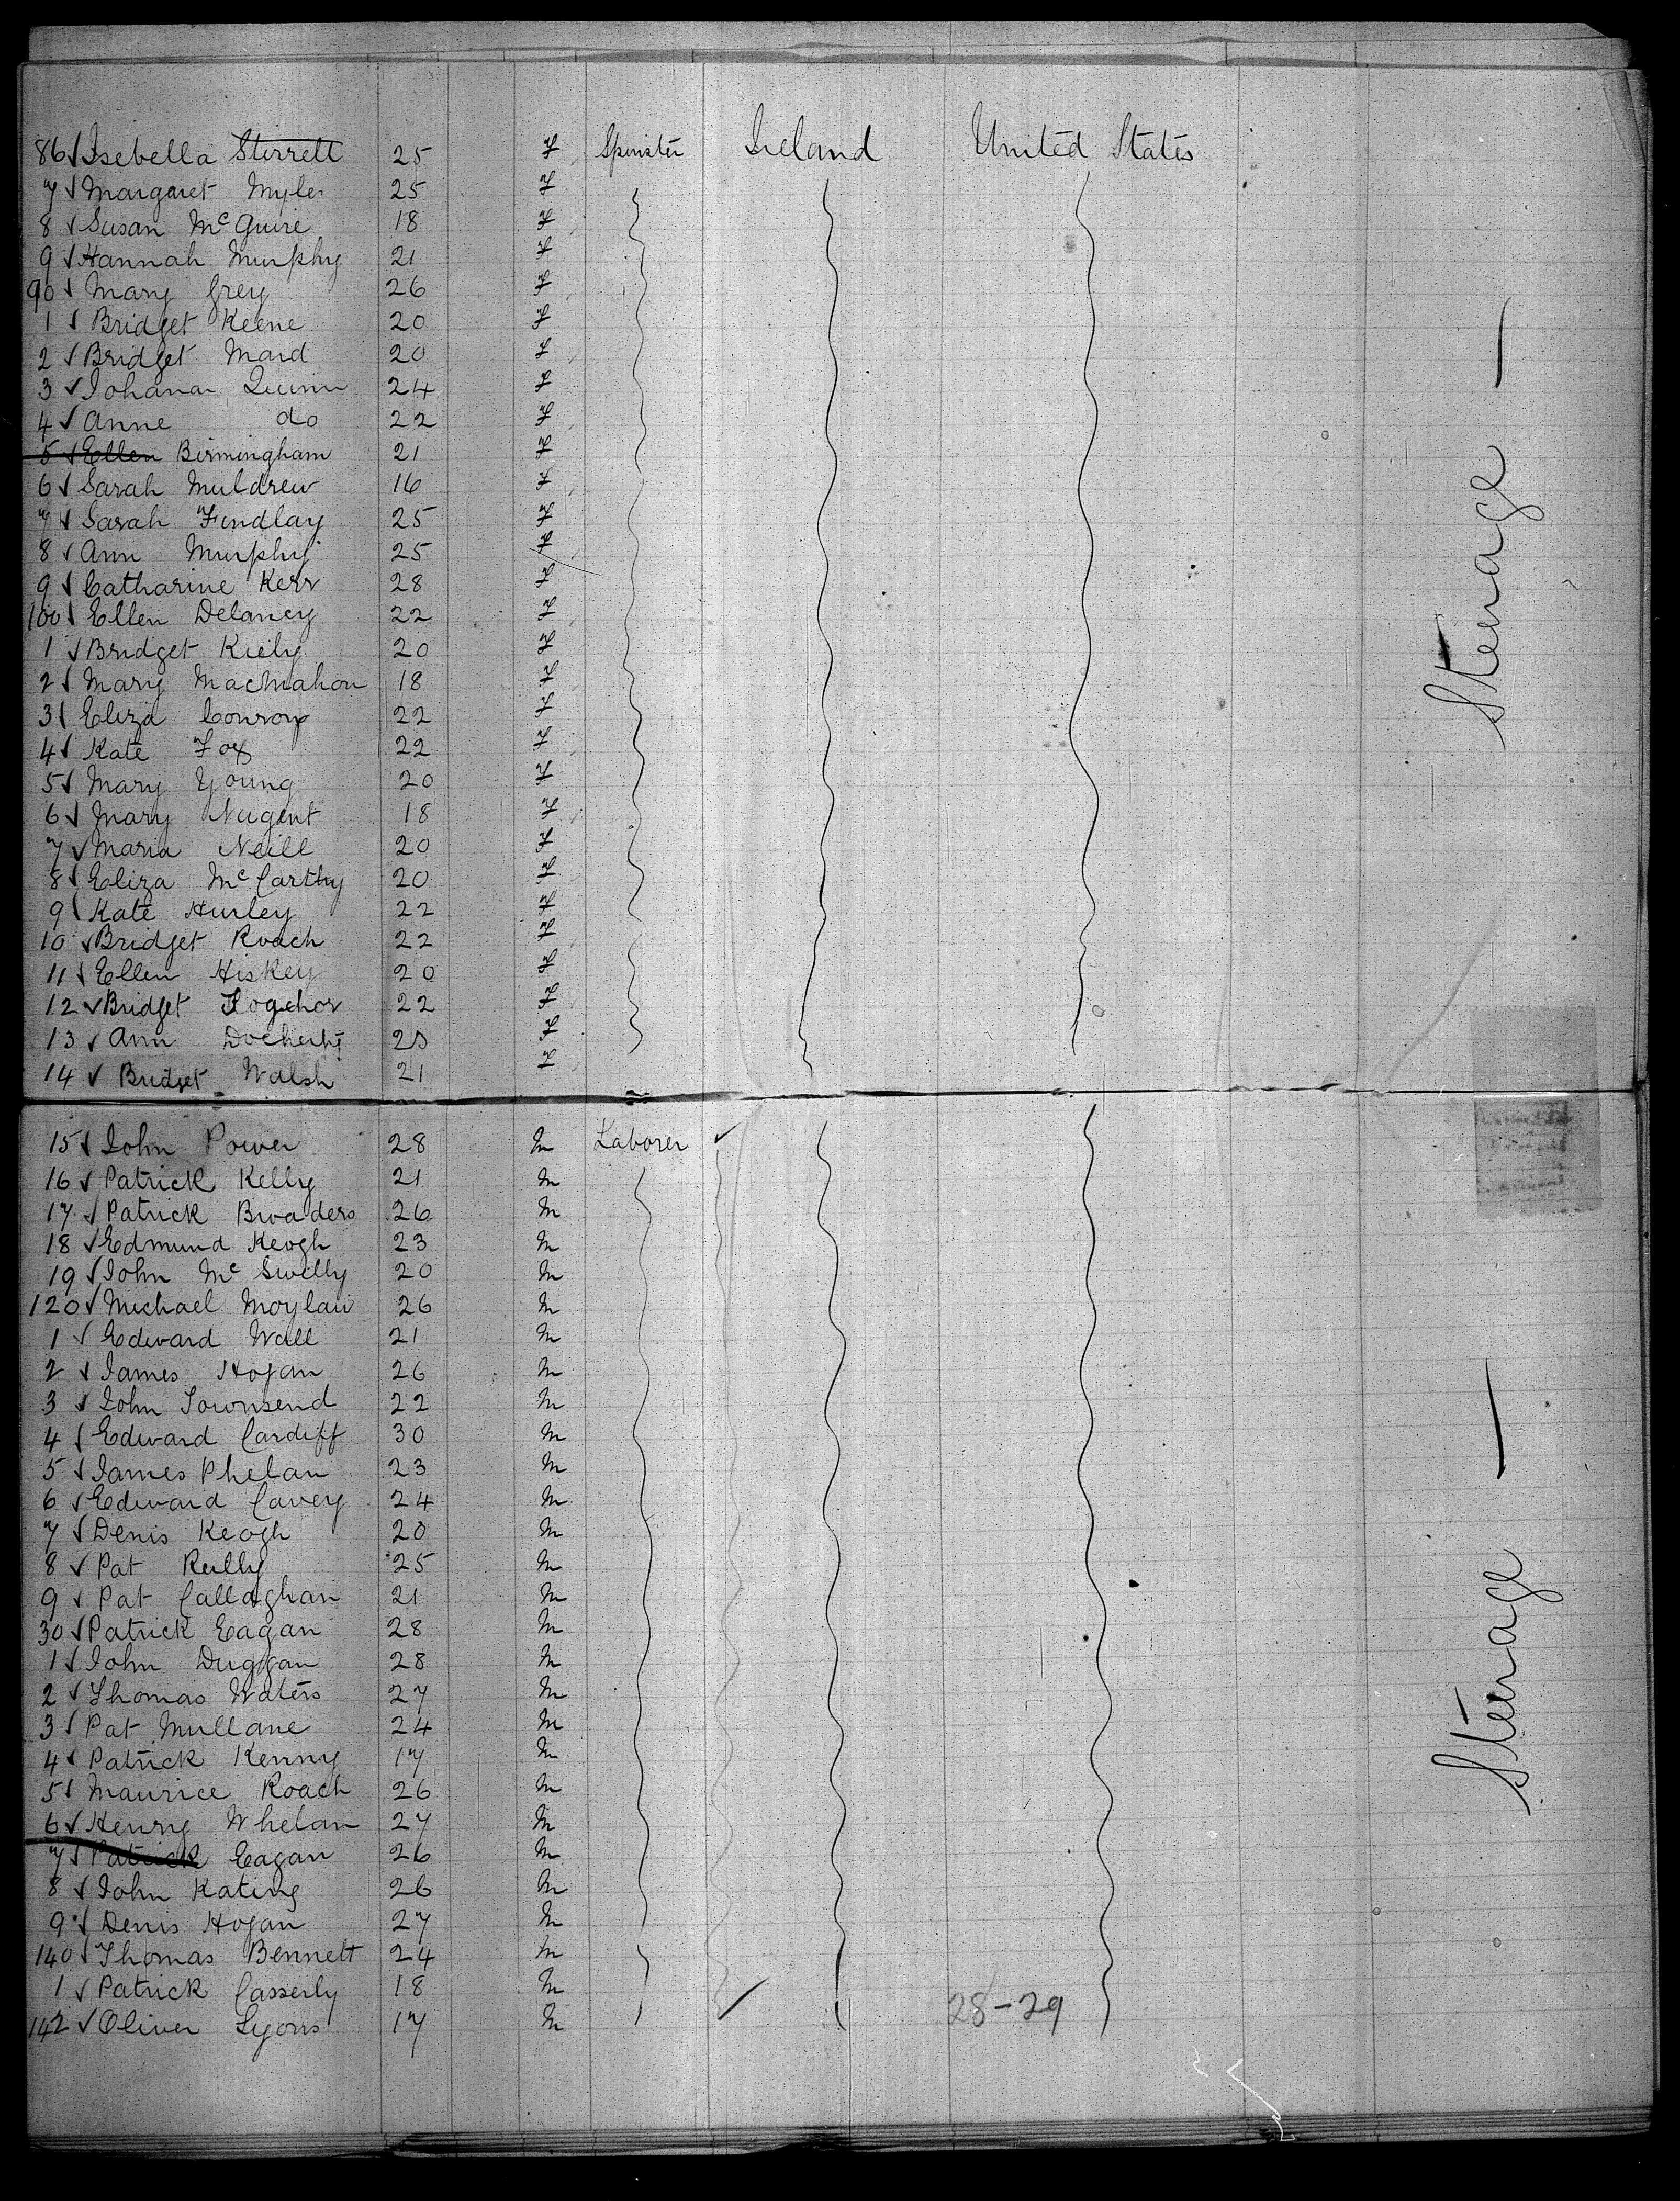 86 Isebella Sterrett 25 F Spinster Ireland United States
7 Margaret Myles 25 F
8 Susan McGuire 18 F
9 Hannah Murphy 21 F
90 Mary Grey 26 F
1 Bridget Keene 20 F
2 Bridget Maid 20 F
3 Johana Quinn 24 F
4 Anne do 22 F
5 Ellen Birmingham 21 F
6 Sarah Muldrew 16 F
7 Sarah Findlay 25 F
8 Ann Murphy 25 F
9 Catharine Kerr 28 F
100 Ellen Delaney 22 F
1 Bridget Kiely 20 F
2 Mary MacMahon 18 F
3 Eliza Conroy 22 F
4 Kate Fox 22 F
5 Mary Young 20 F
6 Mary Nugent 18 F
7 Maria Neill 20 F
8 Eliza McCarthy 20 F
9 Kate Hurley 22 F
10 Bridget Roach 22 F
11 Ellen Hiskey 20 F
12 Bridget 22 F
13 Ann Docherty F
14 Bridget Walsh 21 F
Steerage
15 John Power 28 M Laborer
16 Patrick Kelly 21 M
17 Patrick Broaders 26 M
18 Edmund Keogh 23 M
19 John McSwelly 20 M
120 Michael Moylan 26 M
1 Edward Wall 21 M
2 James Hogan 26 M
3 John Townsend 22 M
4 Edward Cardiff 30 M
5 James Phelan 23 M
6 Edward Cavey 24 M
7 Denis Keogh 20 M
8 Pat Reilly 25 M
9 Pat Callaghan 21 M
30 Patrick Eagan 28 M
1 John Duggan 28 M
2 Thomas Waters 27 M
3 Pat Mullane 24 M
4 Patrick Kenny 17 M
5 Maurice Roach 26 M
6 Henry Whelan 27 M
7 Patrick Eagan 26 M
8 John Kating 26 M
9 Denis Hogan 27 M
140 Thomas Bennett 24 M
1 Patrick Casserly 18 M
142 Oliver Lyons 17 M
28-29
Steerage